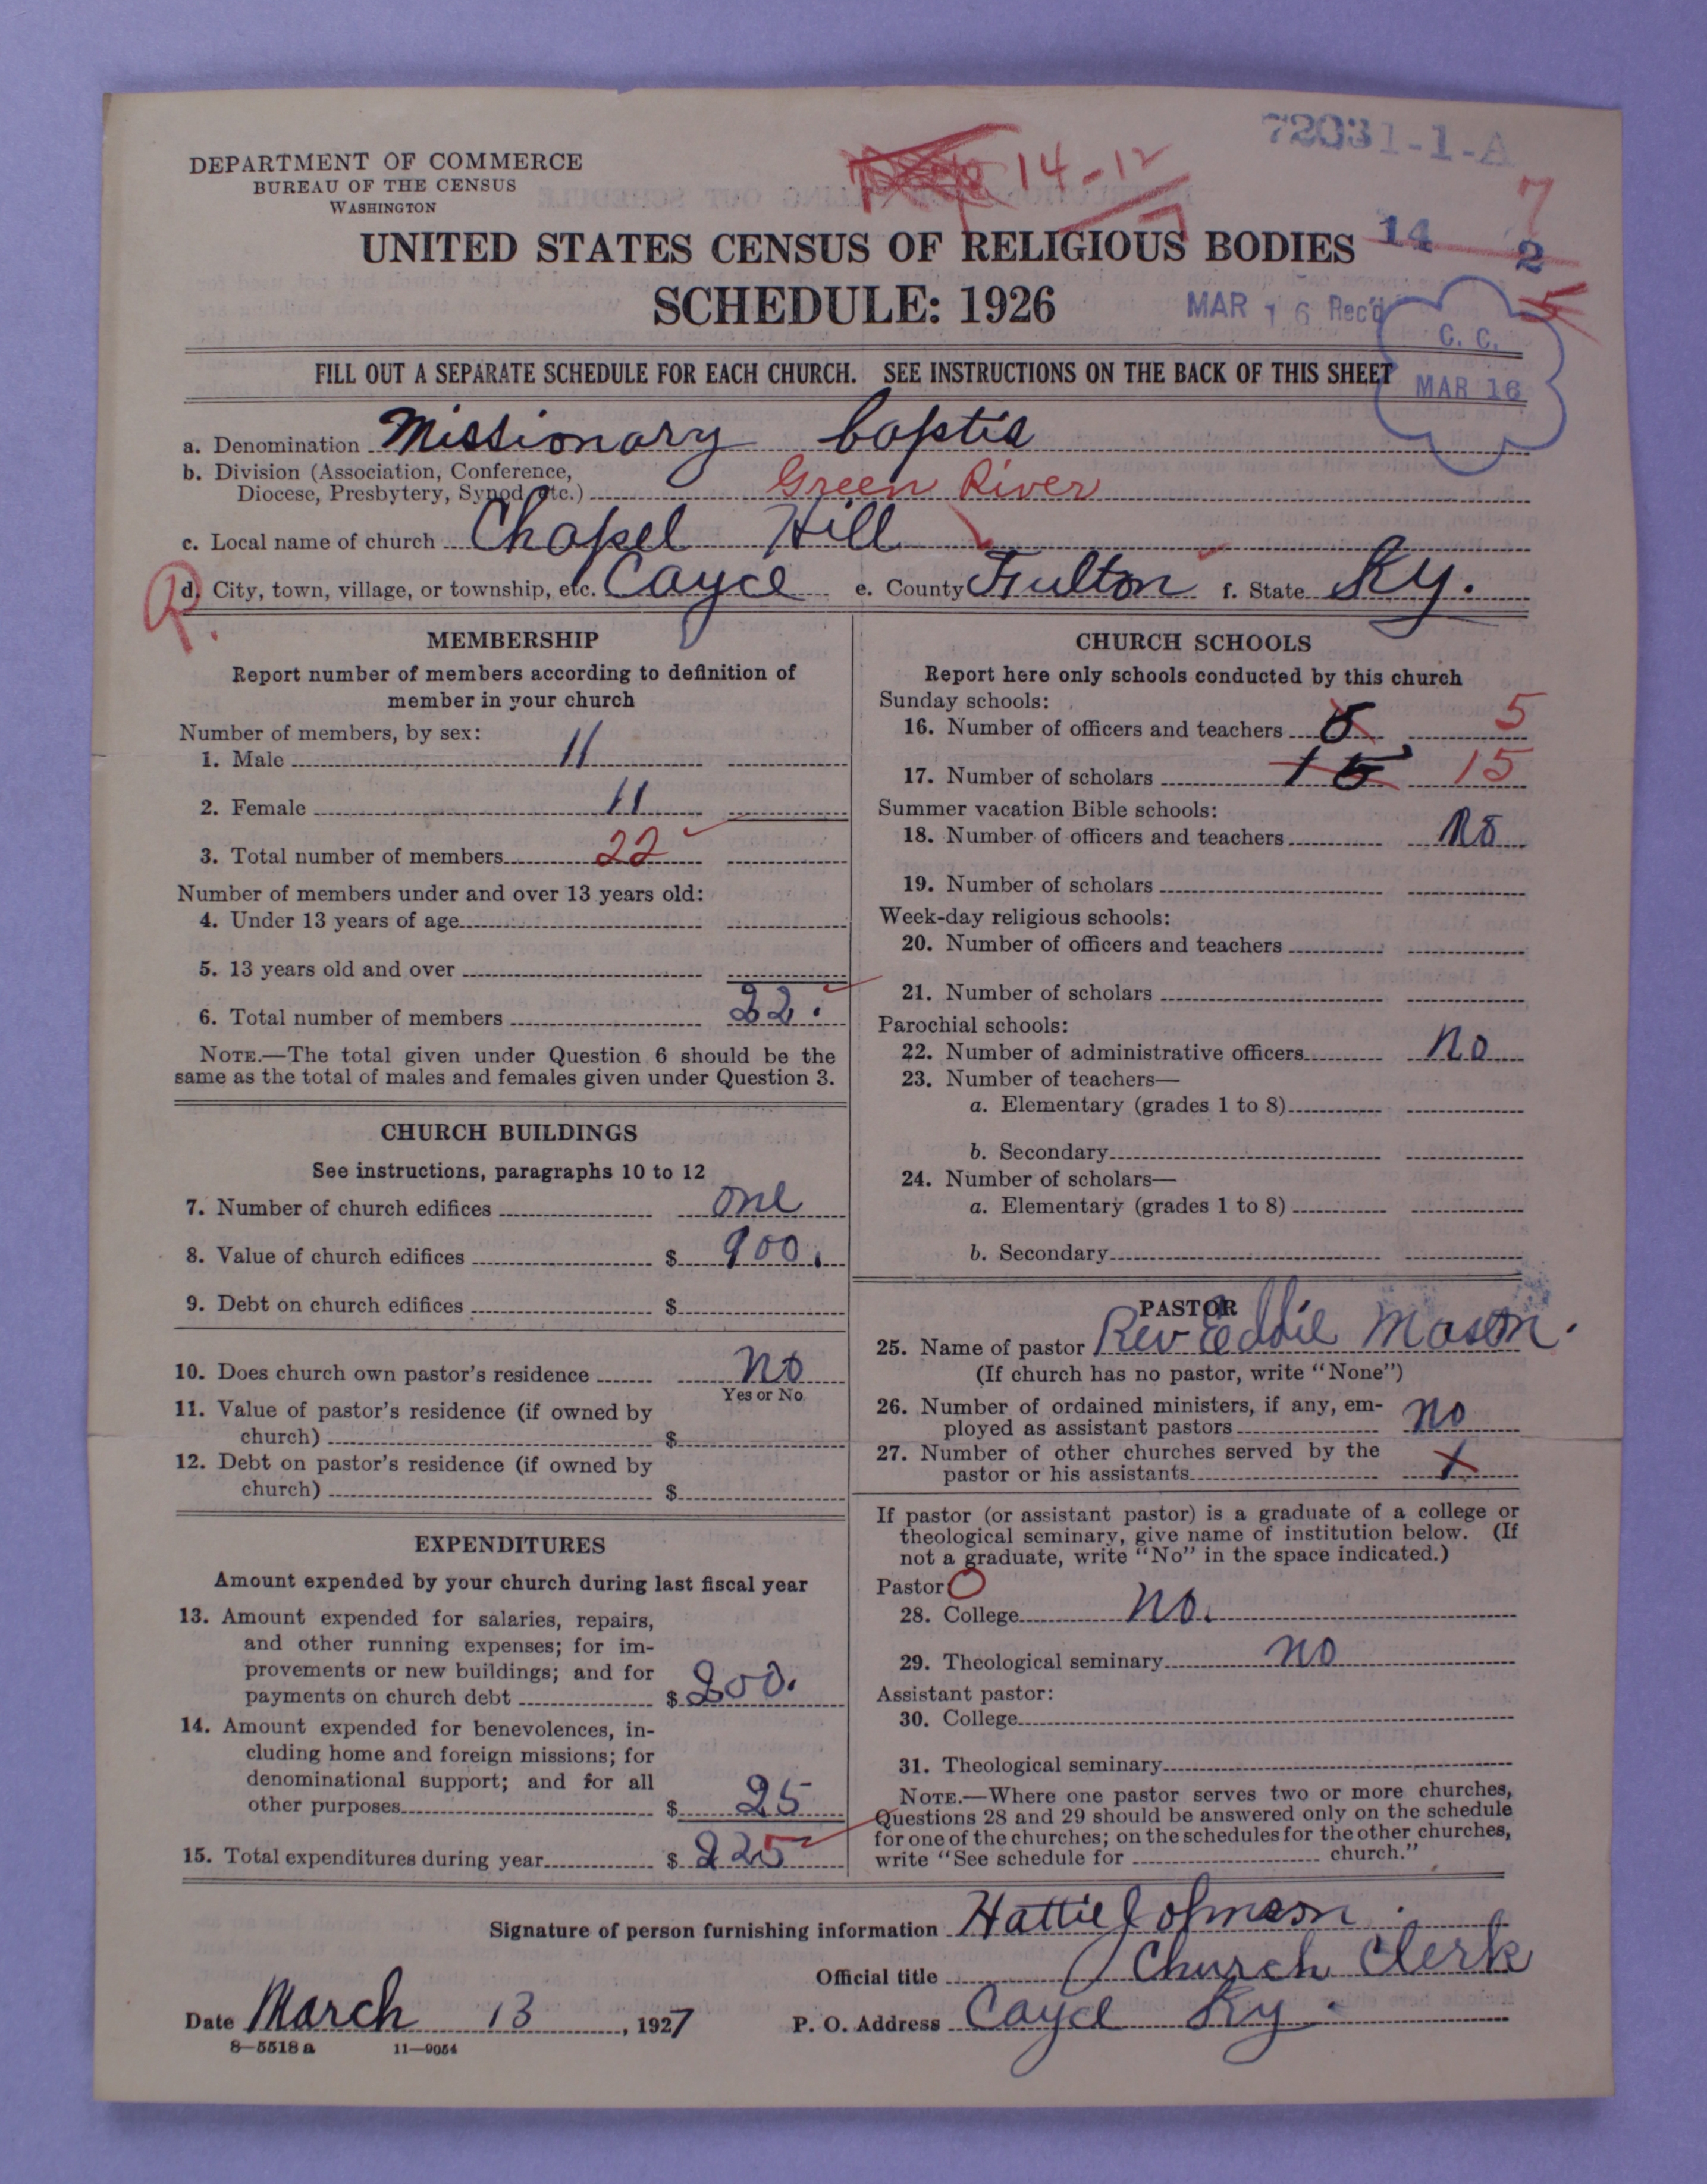 72031-1-A
DEPARTMENT OF COMMERCE
BUREAU OF THE CENSUS
WASHINGTON
14-12
7
UNITED STATES CENSUS OF RELIGIOUS BODIES
14 2
5
SCHEDULE: 1926
MAR 16 Rec'd
C. C.
MAR 16
FILL OUT A SEPARATE SCHEDULE FOR EACH CHURCH. SEE INSTRUCTIONS ON THE BACK OF THIS SHEET
a. Denomination Missionary baptis
b. Division (Association, Conference,
Diocese, Presbytery, Synod, etc.) Green River
c. Local name of church Chapel Hill
R.
d. City, town, village, or township, etc. Cayce e. County Fulton f. State Ky.
MEMBERSHIP
Report number of members according to definition of
member in your church
Number of members, by sex:
1. Male 11
2. Female 11
3. Total number of members 22
Number of members under and over 13 years old:
4. Under 13 years of age
5. 13 years old and over
6. Total number of members 22.
NOTE.—The total given under Question 6 should be the
same as the total of males and females given under Question 3.
CHURCH BUILDINGS
See instructions, paragraphs 10 to 12
7. Number of church edifices one
8. Value of church edifices $ 900.
9. Debt on church edifices $
10. Does church own pastor's residence no
Yes or No
11. Value of pastor's residence (if owned by
church) $
12. Debt on pastor's residence (if owned by
church) $
EXPENDITURES
Amount expended by your church during last fiscal year
13. Amount expended for salaries, repairs,
and other running expenses; for im-
provements or new buildings; and for
payments on church debt $ 200.
14. Amount expended for benevolences, in-
cluding home and foreign missions; for
denominational support; and for all
other purposes $ 25
15. Total expenditures during year $ 225
CHURCH SCHOOLS
Report here only schools conducted by this church
Sunday schools:
16. Number of officers and teachers 5 5
17. Number of scholars 15 15
Summer vacation Bible schools:
18. Number of officers and teachers no
19. Number of scholars
Week-day religious schools:
20. Number of officers and teachers
21. Number of scholars
Parochial schools:
22. Number of administrative officers no
23. Number of teachers—
a. Elementary (grades 1 to 8)
b. Secondary
24. Number of scholars—
a. Elementary (grades 1 to 8)
b. Secondary
PASTOR
25. Name of pastor Rev Eddie Mason.
(If church has no pastor, write "None")
26. Number of ordained ministers, if any, em-
ployed as assistant pastors no
27. Number of other churches served by the
pastor or his assistants X
If pastor (or assistant pastor) is a graduate of a college or
theological seminary, give name of institution below. (If
not a graduate, write "No" in the space indicated.)
Pastor O
28. College no.
29. Theological seminary no
Assistant pastor:
30. College
31. Theological seminary
NOTE.—Where one pastor serves two or more churches,
Questions 28 and 29 should be answered only on the schedule
for one of the churches; on the schedules for the other churches,
write "See schedule for church."
Signature of person furnishing information Hattie Johnson.
Official title Church Clerk
Date March 13, 1927 P. O. Address Cayce Ky.
8—5518 a 11—9054